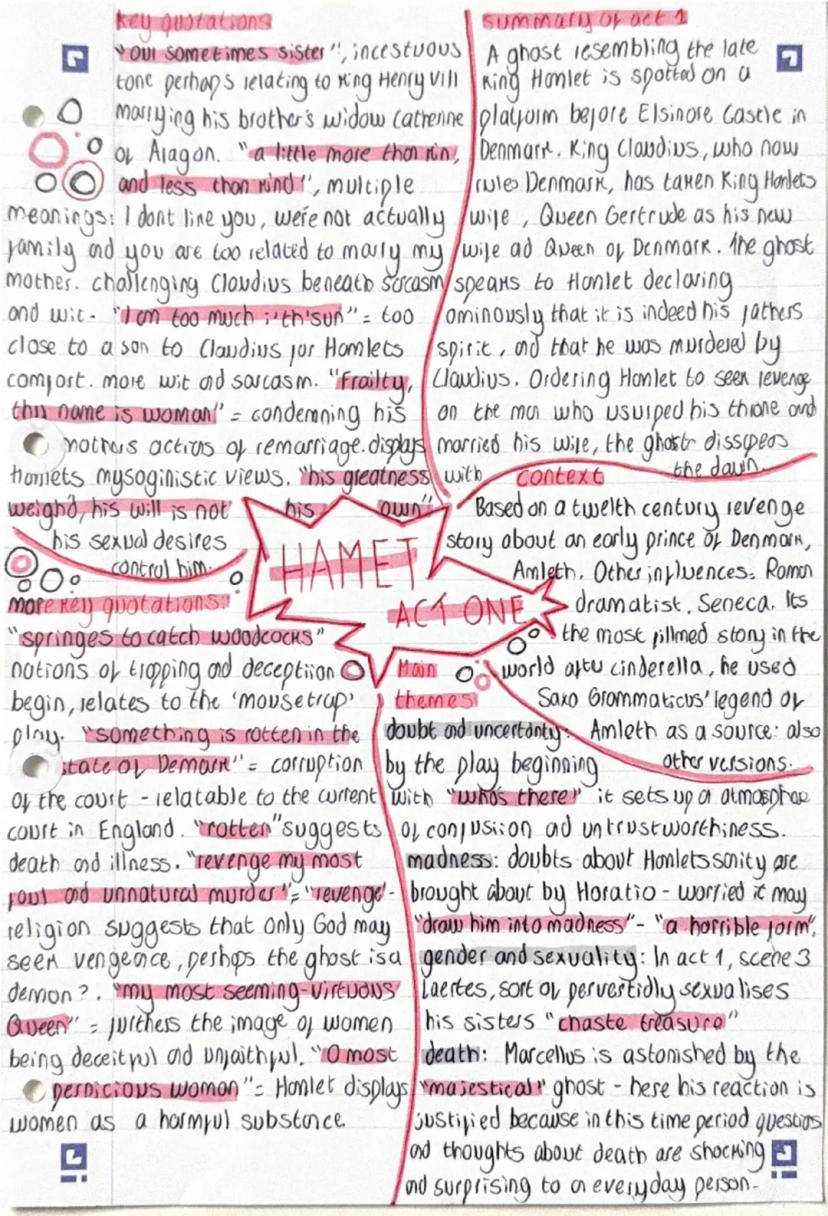 key quotations
"our sometimes sister", incestuous
tone perhaps relating to King Henry VIII
marrying his brother's widow Catherine
of Aragon. "a little more than kin,
and less than kind", multiple
meanings: I dont like you, we're not actually
family and you are too related to marry my
mother. challenging Claudius beneath sarcasm
and wit- "I am too much i'th'sun" = too
close to a son to Claudius for Hamlets
comfort. more wit and sarcasm. "Frailty,
thy name is woman" = condemning his
mothers actions of remarriage. displays
Hamlets mysoginistic views. "his greatness
weigh'd, his will is not his own"
his sexual desires
control him.
summary of act 1
A ghost resembling the late
King Hamlet is spotted on a
platform before Elsinore Castle in
Denmark. King Claudius, who now
rules Denmark, has taken King Hamlets
wife, Queen Gertrude as his new
wife ad Queen of Denmark. The ghost
speaks to Hamlet declaring
ominously that it is indeed his fathers
spirit, and that he was murdered by
Claudius. Ordering Hamlet to seek revenge
on the man who usurped his throne and
married his wife, the ghost
with the dawn.
HAMET
ACT ONE
context
Based on a twelth century revenge
story about an early prince of Denmark,
Amleth. Other influences: Roman
dramatist, Seneca. Its
the most filmed story in the
world after cinderella, he used
Saxo Grammaticus' legend of
Amleth as a source: also
other versions.
more key quotations:
"springes to catch woodcocks"
notions of trapping and deception
begin, relates to the 'mousetrap'
play. "something is rotten in the
state of Demark" = corruption
of the court - relatable to the current
court in England. "rotten" suggests
death and illness. "revenge my most
foul and unnatural murder" = "revenge"-
religion suggests that only God may
seek vengence, perhaps the ghost is a
demon?. "my most seeming-virtuous
Queen" = furthers the image of women
being deceitful and unfaithful. "O most
pernicious woman" = Hamlet displays
women as a harmful substance.
Main
themes
doubt ad uncertanty:
by the play beginning
with "who's there" it sets up a atmosphere
of confusiion ad untrustworthiness.
madness: doubts about Hamlets sanity are
brought about by Horatio - worried it may
"draw him into madness" - "a horrible form".
gender and sexuality: In act 1, scene 3
Laertes, sort of pervertidly sexualises
his sisters "chaste treasure"
death: Marcellus is astonished by the
"majestical" ghost - here his reaction is
justified because in this time period questions
and thoughts about death are shocking
and surprising to an everyday person-